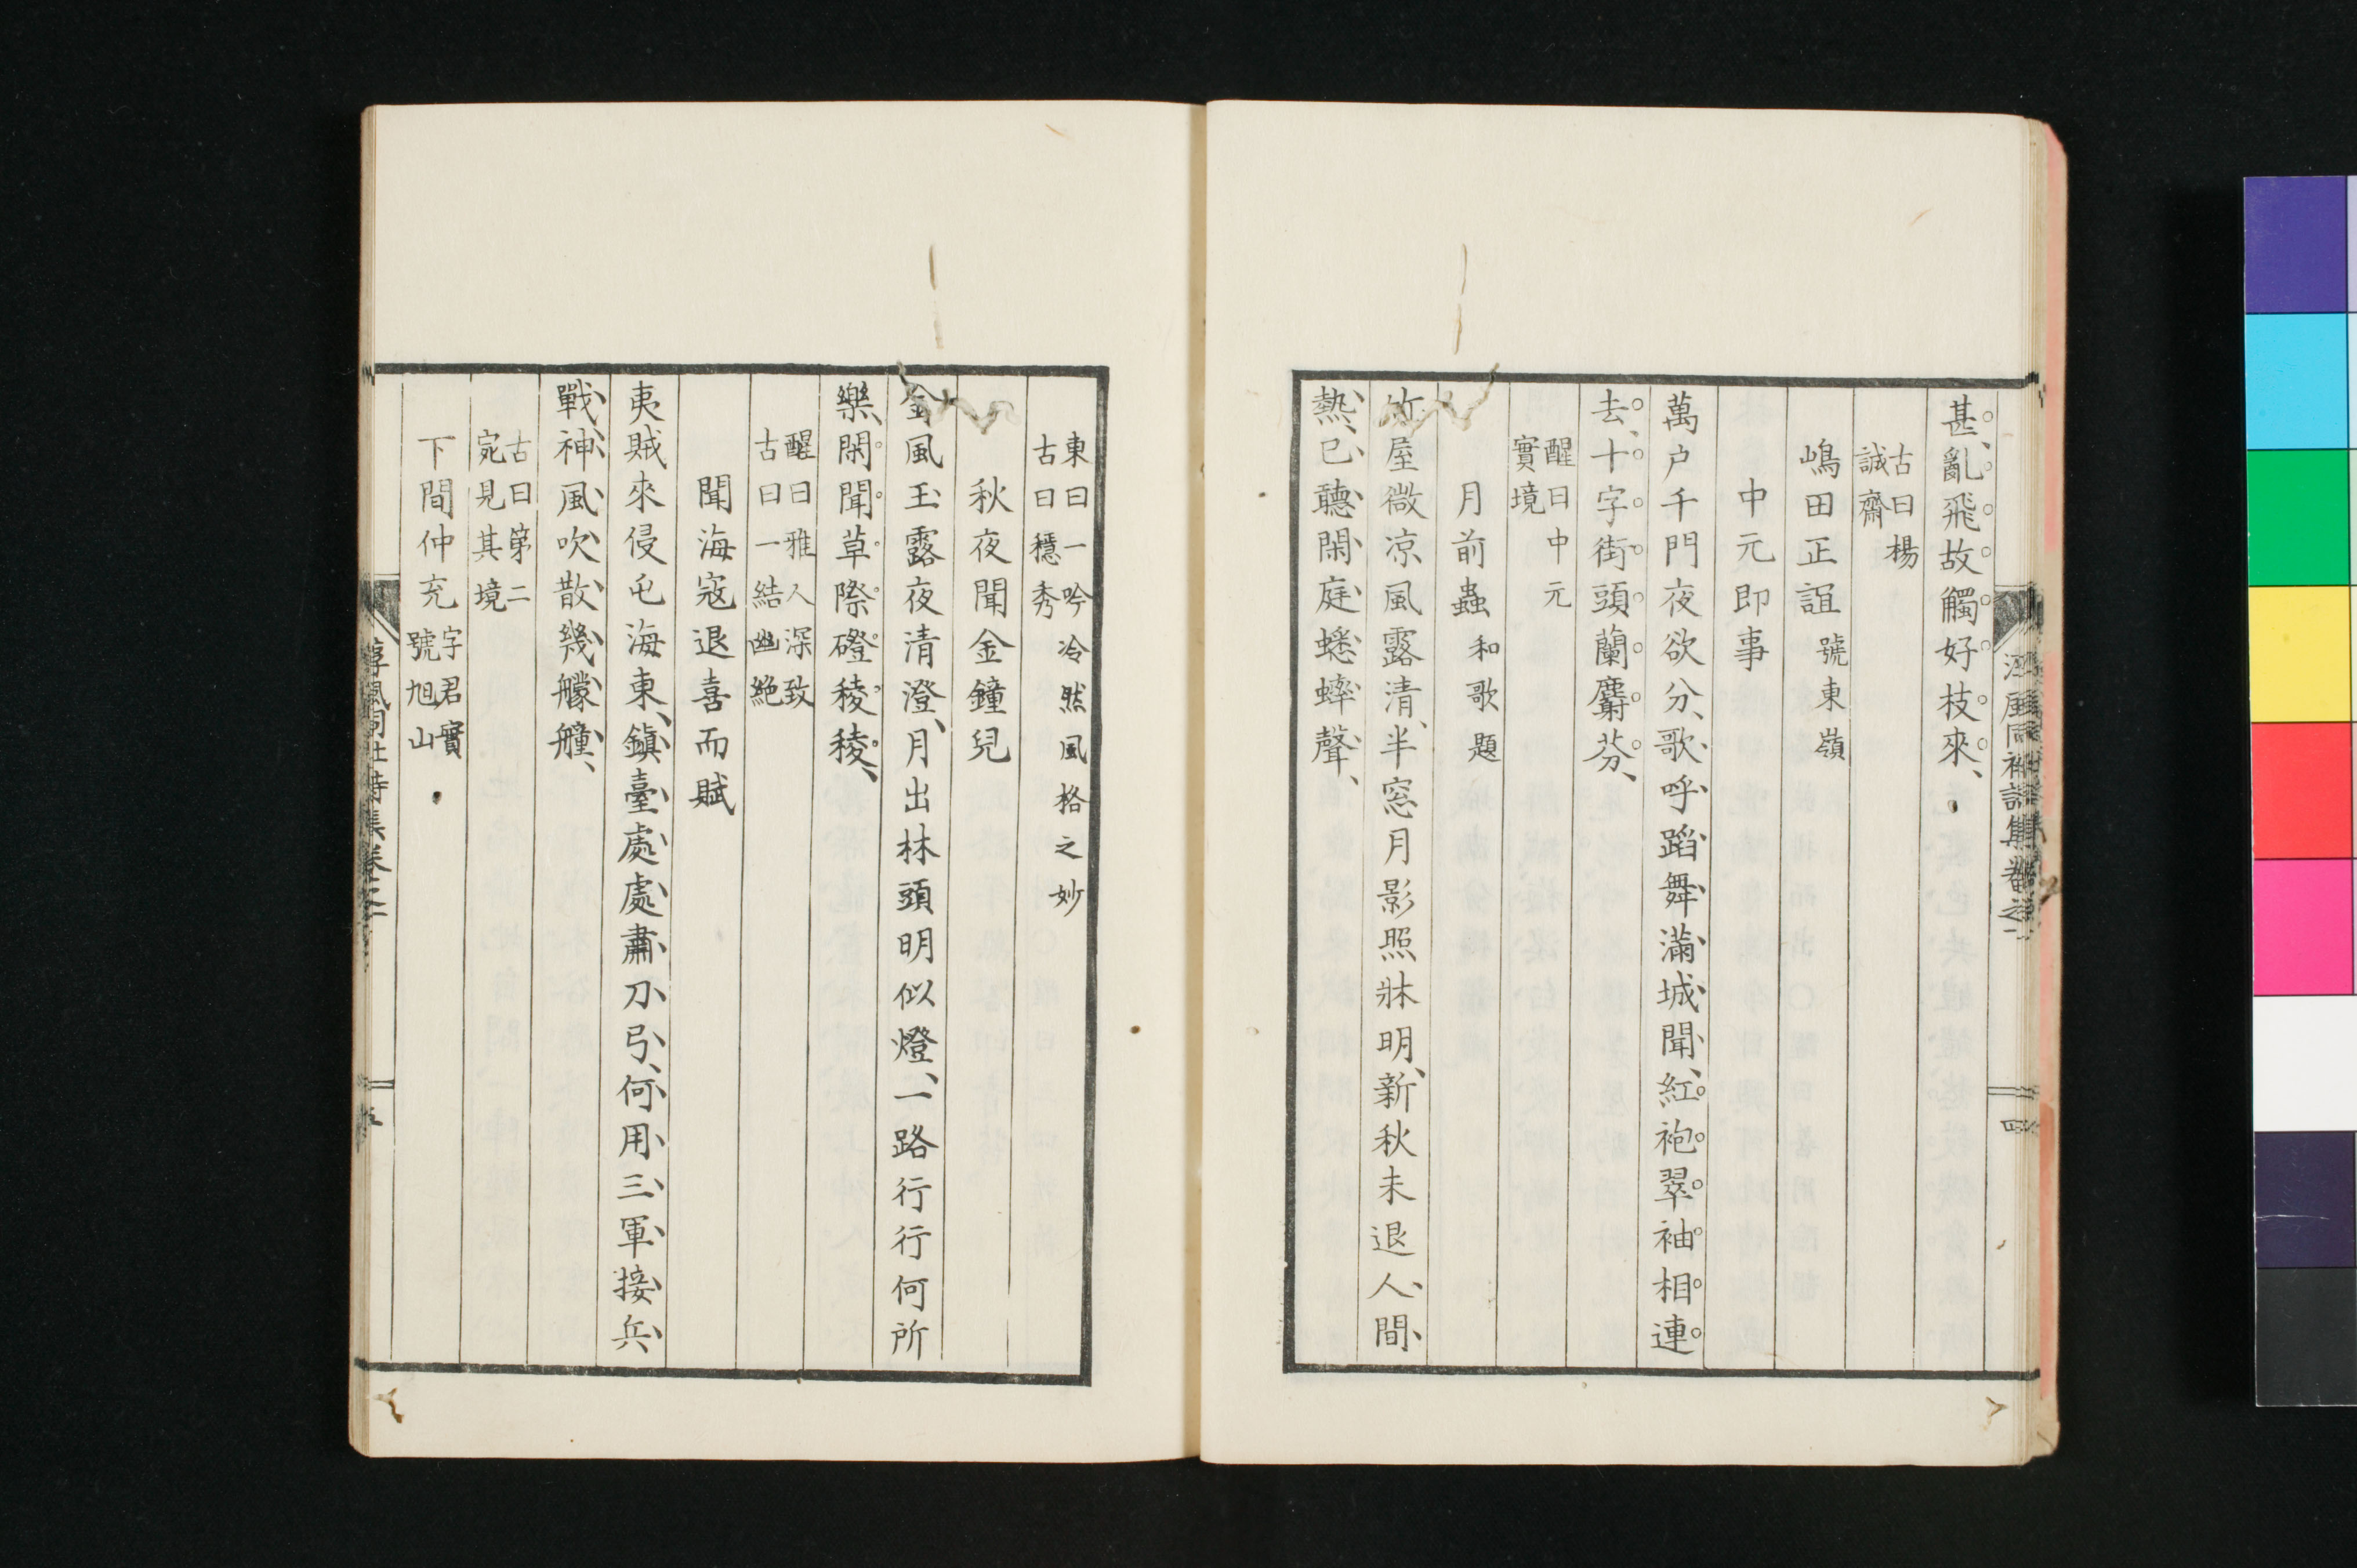 甚、亂飛故觸好枝來、
古曰楊
誠齋
嶋田正誼 號東嶺
中元即事
萬户千門夜欲分、歌呼蹈舞滿城聞、紅袍翠袖相連
去、十字街頭蘭麝芬、
醒曰中元
實境
月前蟲 和歌題
竹屋微凉風露清、半窓月影照牀明、新秋未退人間
熱、已聽閑庭蟋蟀聲、
四
東曰一吟冷然風格之妙
古曰穩秀
秋夜聞金鐘兒
金風玉露夜清澄、月出林頭明似燈、一路行行何所
樂、閑聞草際磴稜稜、
醒曰雅人深致
古曰一結幽絶
聞海寇退喜而賦
夷賊來侵屯海東、鎭臺處處肅刀弓、何用三軍接兵
戰、神風吹散幾艨艟、
古曰第二
宛見其境
下間仲充 字君實
號旭山
淳風同社詩集卷之二
五